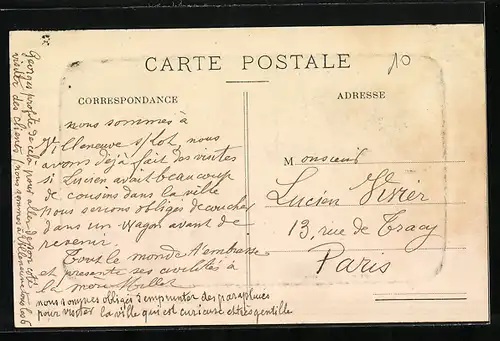 CARTE POSTALE
10
CORRESPONDANCE
ADRESSE
nous sommes à
Villeneuve s/Lot, nous
avons déjà fait des visites
si Lucien avait beaucoup
de cousins dans la ville
nous serions obligés de coucher
dans un wagon avant de
revenir.
Tout le monde t'embrasse
et présente ses civilités à
la mère Mollet
nous sommes obligés d'emprunter des parapluies
pour visiter la ville qui est curieuse et très gentille
Monsieur
Lucien Vivier
13, rue de Tracy
Paris
Georges profite de cela pour aller de son côté
visiter des clients (nous sommes à Villeneuve tous les 6